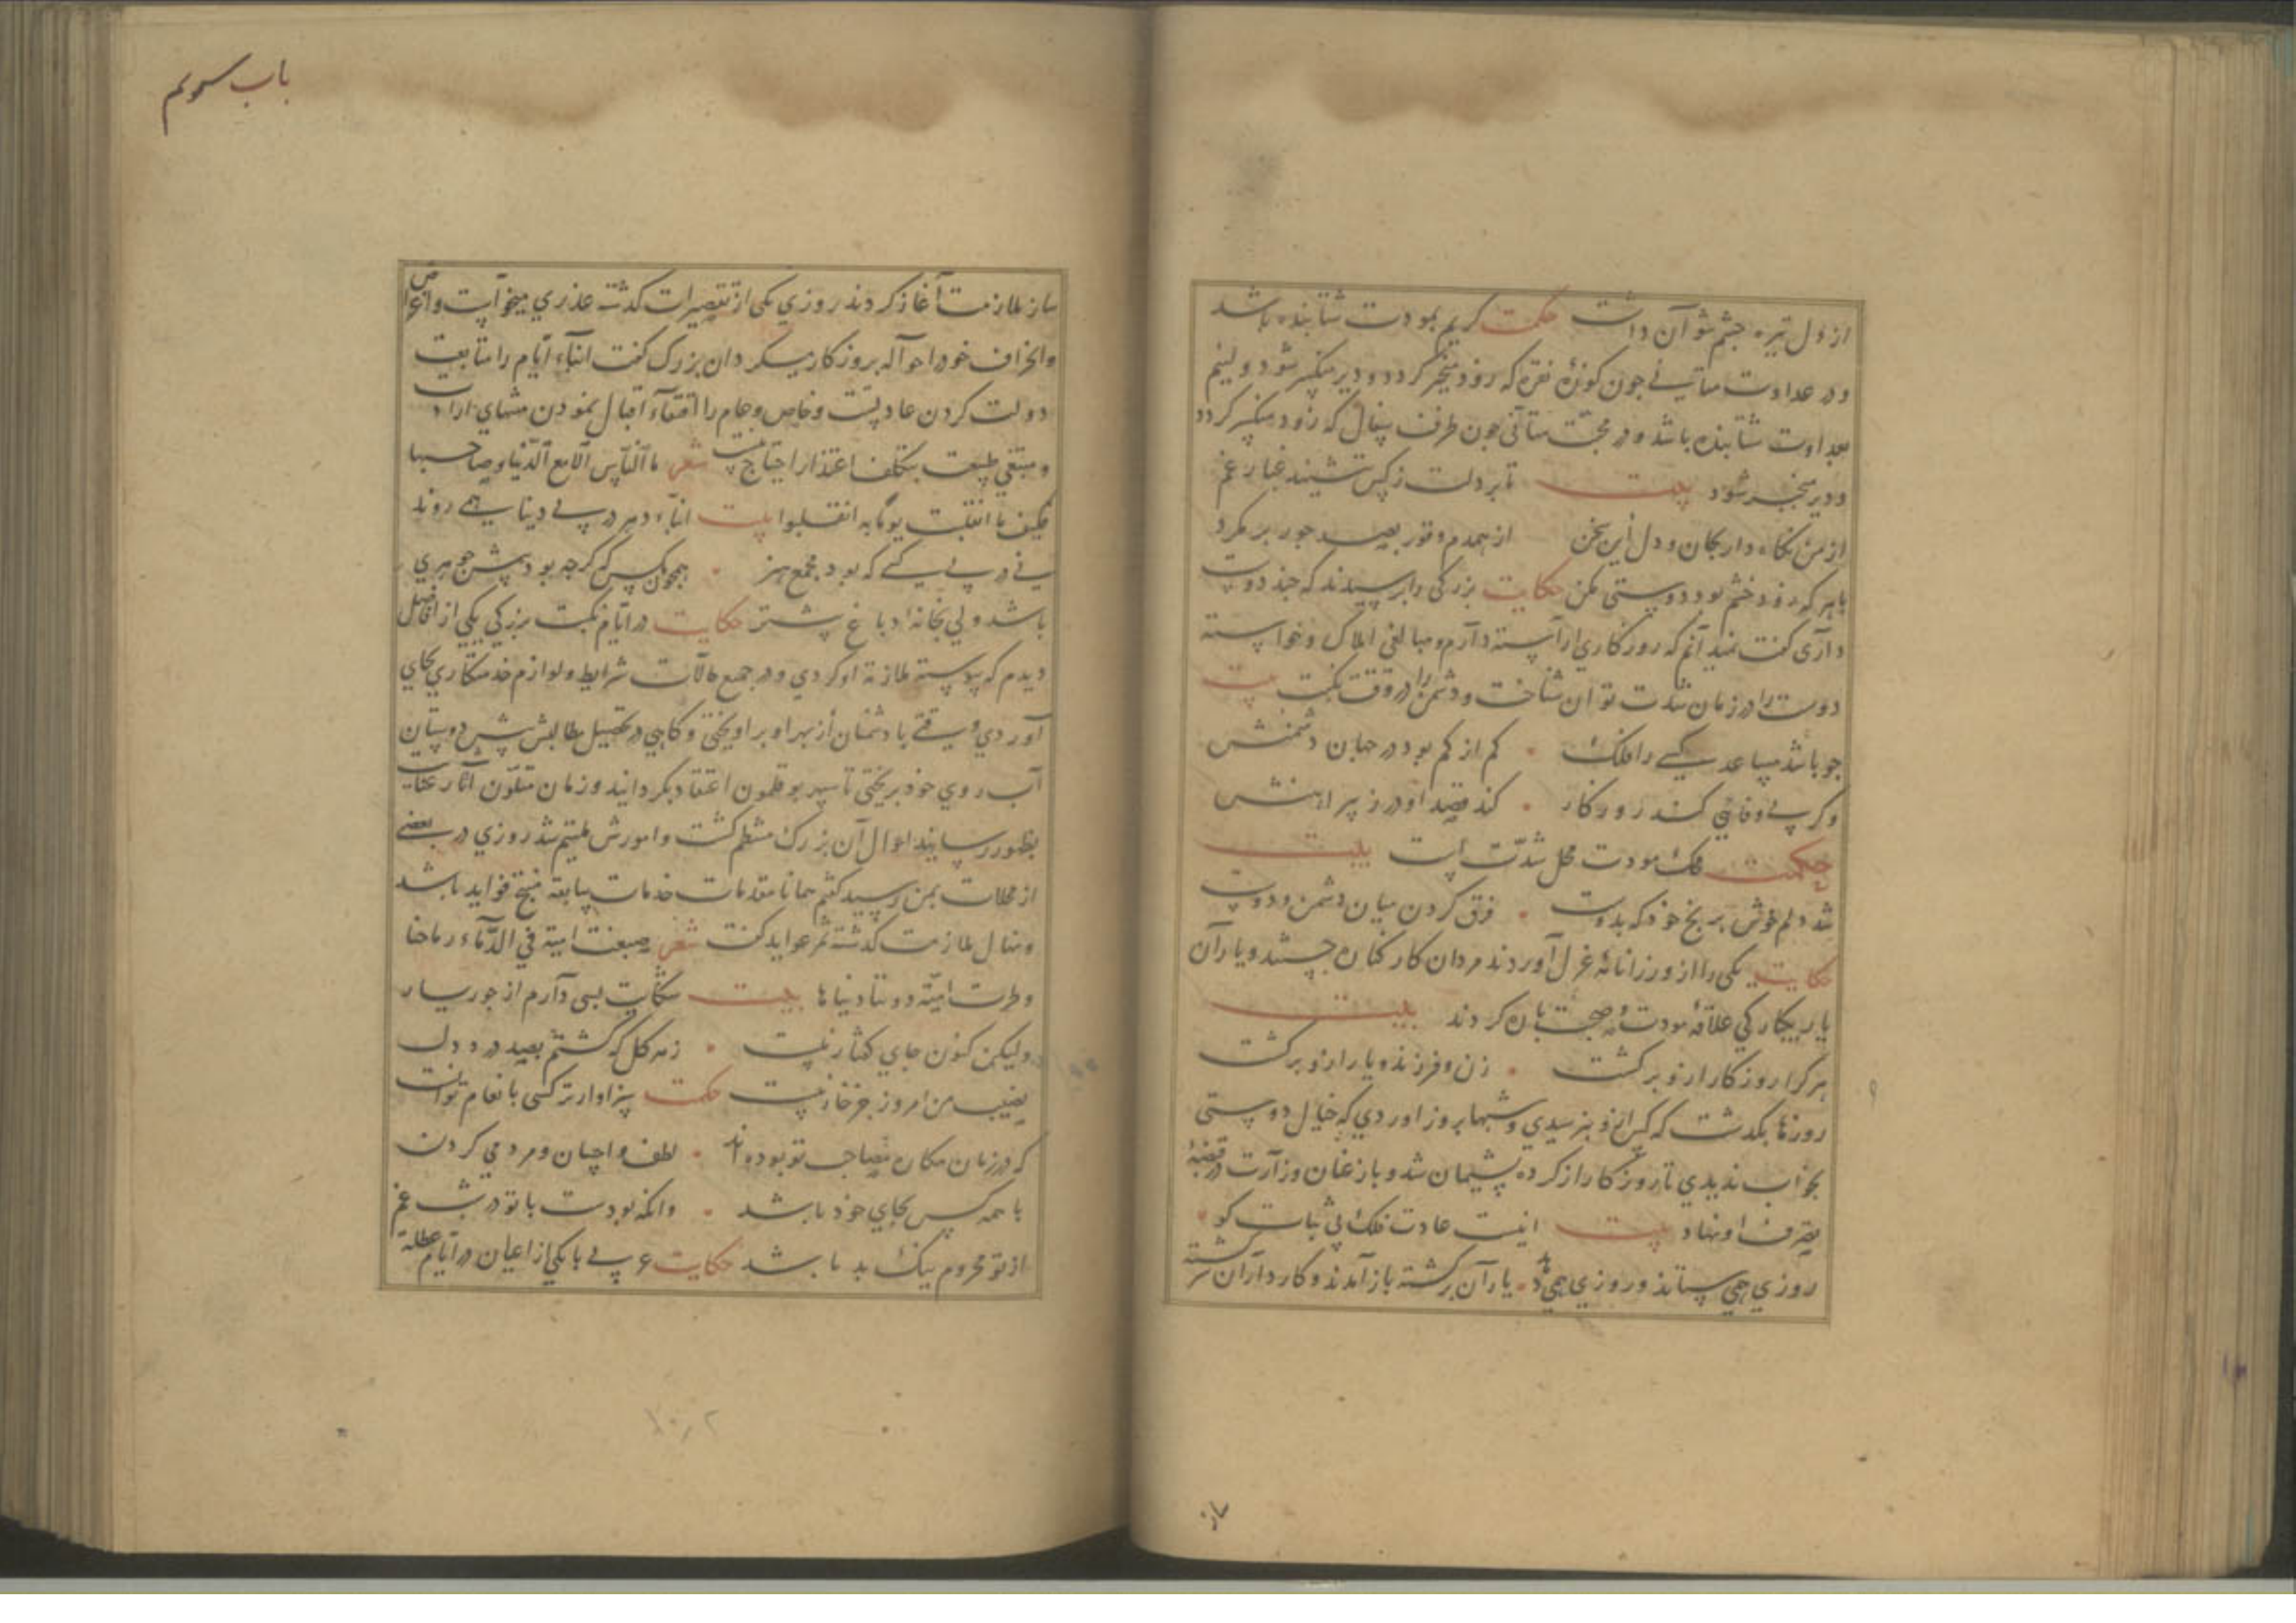 از دل تیره چشم شو آن داشت حکمت کریم بمودت شتابنده باشد
و در عداوت متأنی چون کوزهٔ نقره که زود منجبر کردد و دیر منکسر شود و لئیم
بعداوت شتابنده باشد و در محبت متأنی چون ظرف سفال که زود منکسر کردد
و دیر منجبر شود بیت تا بر دلت ز کس ننشیند غبار غم
از من نکاه دار بجان و دل این سخن از همدم و نور بصر جور بر مکرد
با هر که زود خشم بود دوستی مکن حکایت بزرکی را پرسیدند که چند دوست
داری کفت نمیدانم که روزکاری آراسته دارم و مبالغی املاک و خواسته
دوست را در زمان شدت توان شناخت و دشمن را در وقت نکبت بیت
چو باشد مساعد کسی را فلک کم از کم بود در جهان دشمنش
وکر بی وفائی کند روزکار کند قصد او درز پیراهنش
حکمت محک مودت محل شدّت است بیت
شد دلم خوش برنج خود که بدوست فرق کردن میان دشمن و دوست
حکایت یکی را از وزرا نامهٔ عزل آوردند مردان کار کناره جستند و یاران
یار بیکارکی علاقهٔ مودت و صحبت پاره کردند بیت
هر کرا روزکار ازو برکشت زن و فرزند و یار ازو برکشت
روزها بکذشت که کس ازو نپرسیدی و شبها بروز آوردی که خیال دوستی
بخواب ندیدی تا روزکار از کرده پشیمان شد و باز عنان وزارت در قبضهٔ
تصرف او نهاد بیت اینست عادت فلک بی ثبات کو
روزی همی ستاند و روزی همی دهد یاران برکشته باز آمدند و کارداران سرکشته
ساز
باب سوم
ساز ملازمت آغاز کردند روزی یکی از تقصیرات کذشته عذری میخواست و اعراض
و انحراف خود را حواله بروزکار میکرد آن بزرک کفت ابناء ایام را متابعت
دولت کردن عادتست و خاص و عام را اقتفاء اقبال نمودن منتهای ارادت
و مبتغی طبیعت بتکلف اعتذار احتیاج نیست شعر ما الناس الا مع الدنیا و صاحبها
فکیف ما انقلبت یوما به انقلبوا بیت ابناء دهر در پی دنیا همی روند
نی در پی کسی که بود مجمع هنر همچون مکس که کرچه بود پیش جوهری
باشد ولی بخانهٔ دباغ پیشتر حکایت در ایام نکبت بزرکی یکی از افاضل
دیدم که پیوسته ملازمة او کردی و در جمیع حالات شرایط و لوازم خدمتکاری بجای
آوردی وقتی با دشمنان از بهر او بر آویختی و کاهی در تحصیل مطالبش پیش دوستان
آب روی خود بریختی تا سپهر بوقلمون اعتقاد بکردانید و زمان متلون آثار عنایت
بظهور رسانید احوال آن بزرک منتظم کشت و امورش ملتئم شد روزی در بعضی
از محلات بمن رسید کفتم همانا مقدمات خدمات سابقه منتج فواید باشد
و نهال ملازمت کذشته مثمر عواید کفت شعر صبغت امیة فی الدماء رماحنا
و طوت امیة دوننا دنیاها بیت شکایت بسی دارم از جور یار
ولیکن کنون جای کفتار نیست ز هر کل که کشتم بصد درد دل
نصیب من امروز جز خار نیست حکمت سزاوارتر کسی بانعام تو آنست
که در زمان مکاره مصاحب تو بوده اند لطف و احسان و مردمی کردن
با همه کس بجای خود باشد وانکه بودست با تو در شب غم
از تو محروم نیک بد باشد حکایت عربی با یکی از اعیان در ایام عطلة